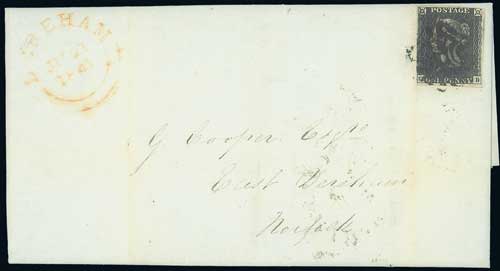 DEREHAM
1841
POSTAGE
ONE PENNY
G Cooper Esqre
East Dereham
Norfolk